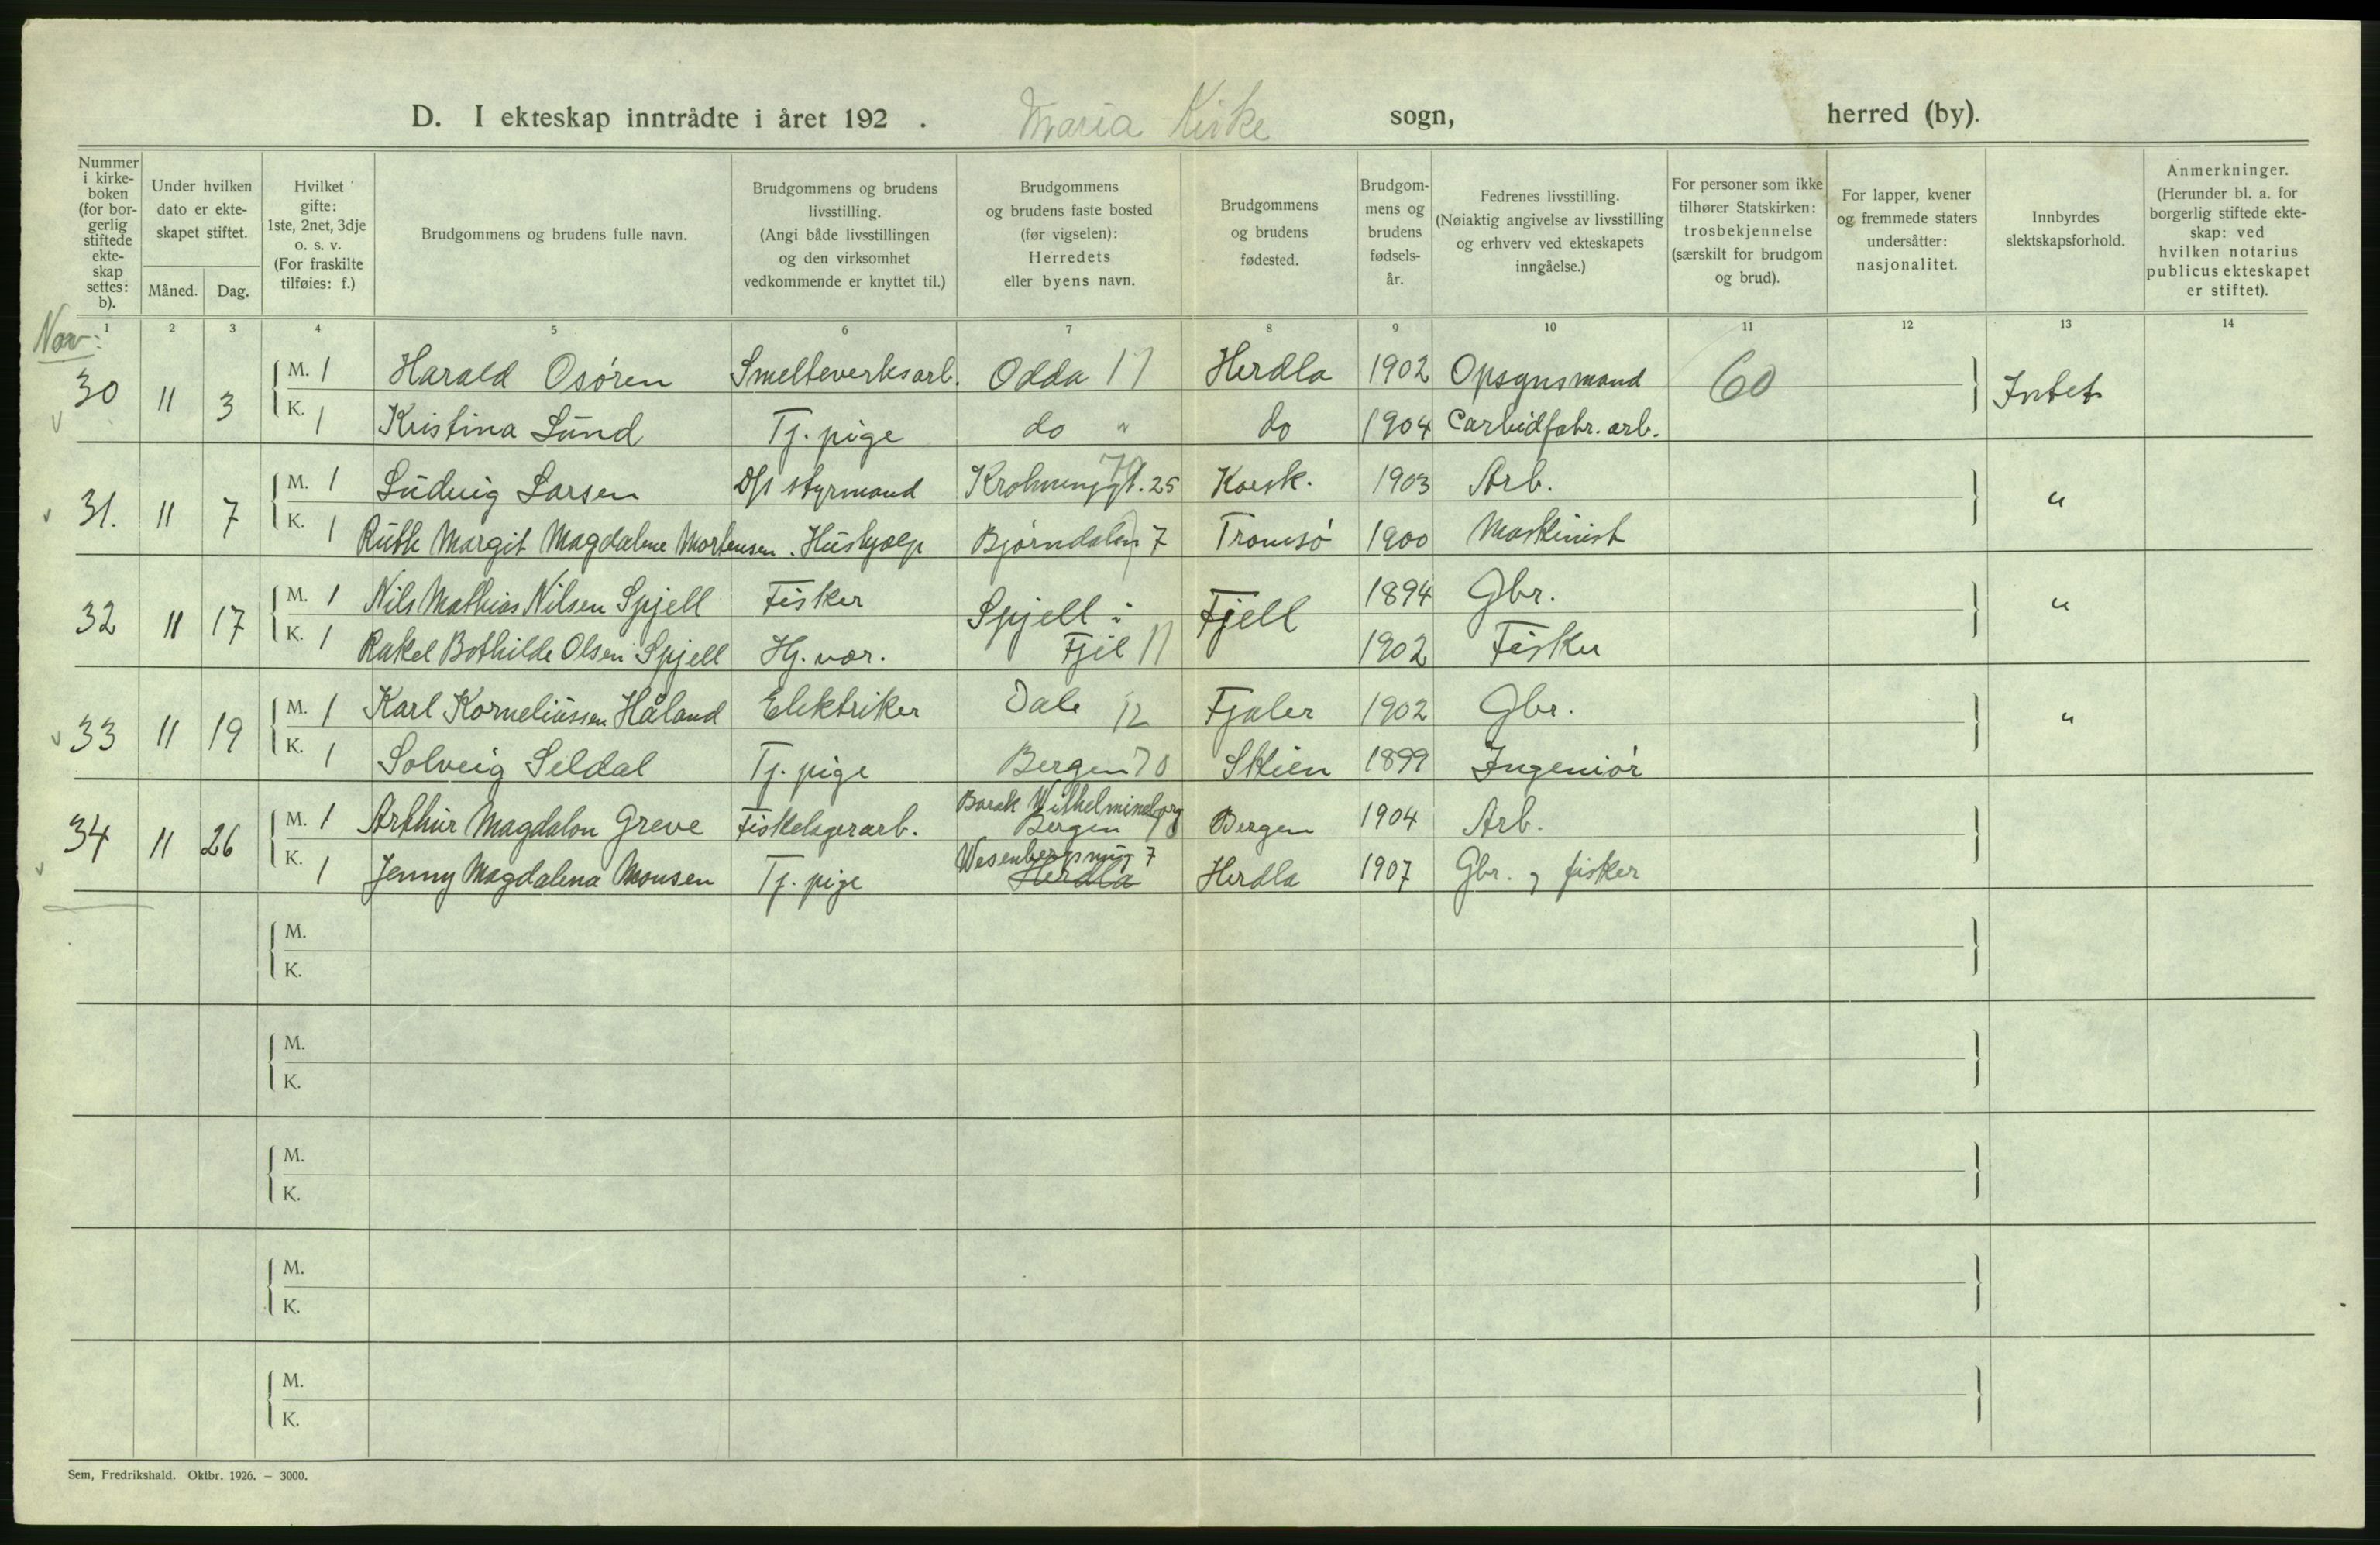 D. I ekteskap inntrådte i året 192 . Maria Kirke sogn, herred (by).
Nummer i kirke-boken (for bor-gerlig stiftede ekte-skap settes: b).
Under hvilken dato er ekte-skapet stiftet.
Måned. Dag.
Hvilket gifte: 1ste, 2net, 3dje o. s. v. (For fraskilte tilføies: f.)
Brudgommens og brudens fulle navn.
Brudgommens og brudens livsstilling. (Angi både livsstillingen og den virksomhet vedkommende er knyttet til.)
Brudgommens og brudens faste bosted (før vigselen): Herredets eller byens navn.
Brudgommens og brudens fødested.
Brudgom-mens og brudens fødsels-år.
Fedrenes livsstilling. (Nøiaktig angivelse av livsstilling og erhverv ved ekteskapets inngåelse.)
For personer som ikke tilhører Statskirken: trosbekjennelse (særskilt for brudgom og brud).
For lapper, kvener og fremmede staters undersåtter: nasjonalitet.
Innbyrdes slektskapsforhold.
Anmerkninger. (Herunder bl. a. for borgerlig stiftede ekte-skap: ved hvilken notarius publicus ekteskapet er stiftet).
1 2 3 4 5 6 7 8 9 10 11 12 13 14
Nov:
30 11 3 M. 1 Harald Osøren Smelteverksarb. Odda 11 Herdla 1902 Opsynsmand 60 Intet
K. 1 Kristina Lund Tj. pige do " do 1904 Carbidfabr. arb.
31. 11 7 M. 1 Ludvig Larsen D/s styrmand 70 Krohnengt. 25 Koesk. 1903 Arb. "
K. 1 Ruth Margit Magdalene Mortensen. Hushjælp Bjørndalen 7 Tromsø 1900 Maskinist
32 11 17 M. 1 Nils Mathias Nilsen Spjell Fisker Spjell i Fjell 1894 Gbr. "
K. 1 Rakel Bothilde Olsen Spjell Hj. vær. Fjel 11 1902 Fisker
33 11 19 M. 1 Karl Korneliussen Håland Elektriker Dale 12 Fjaler 1902 Gbr. "
K. 1 Solveig Seldal Tj. pige Bergen 70 Skien 1899 Ingeniør
34 11 26 M. 1 Arthur Magdalon Greve Fiskelagerarb. Barak Wilhelmineborg Bergen 70 Bergen 1904 Arb.
K. 1 Jenny Magdalena Monsen Tj. pige Wesenbergsmug 7 Herdla Herdla 1907 Gbr. og fisker
M.
K.
M.
K.
M.
K.
M.
K.
M.
K.
Sem, Fredrikshald. Oktbr. 1926. – 3000.